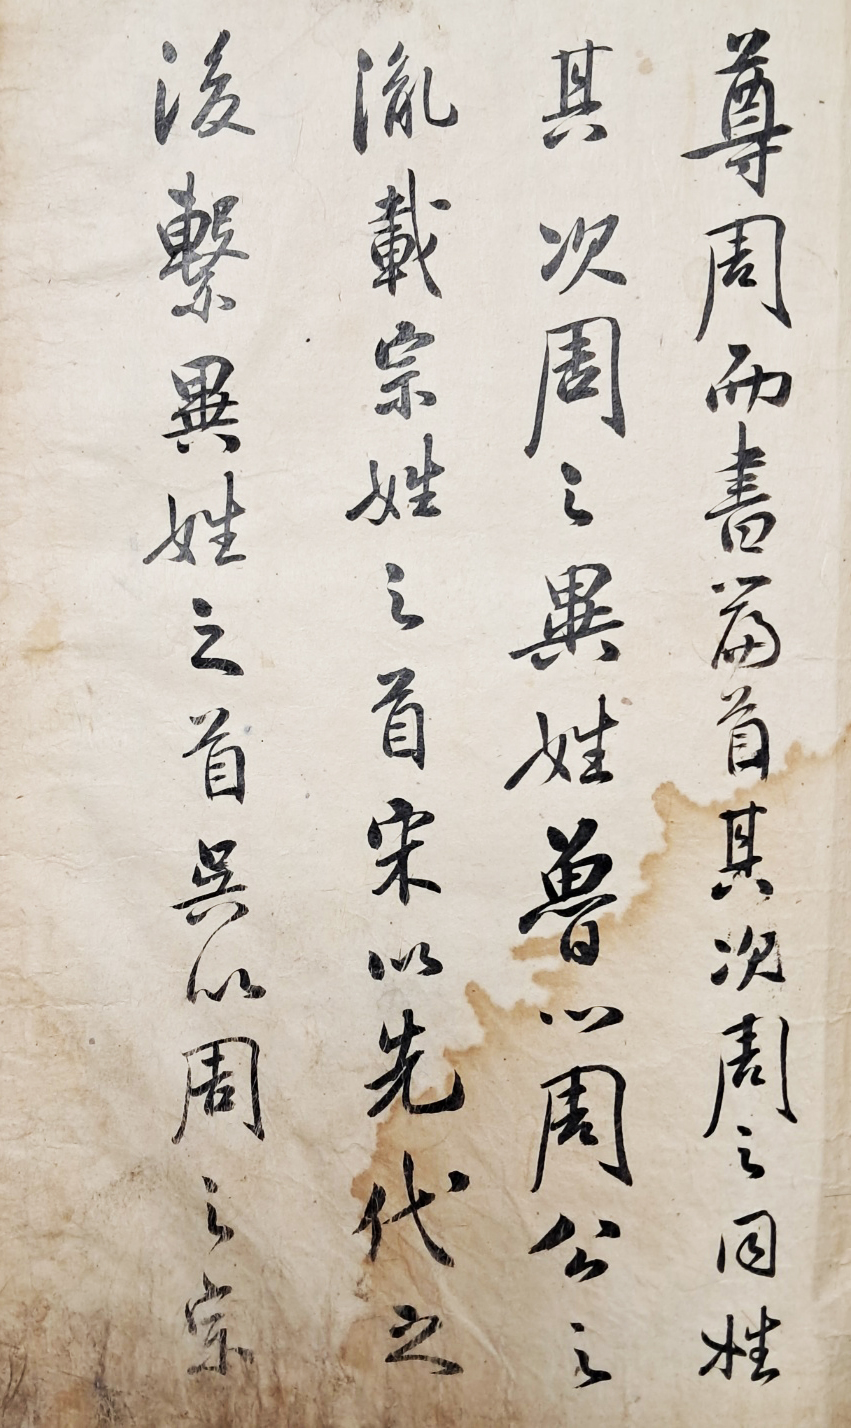 尊周而書篇首其次周之同姓
其次周之異姓魯以周公之
胤載宗姓之首宋以先代之
後繫異姓之首吳以周之宗